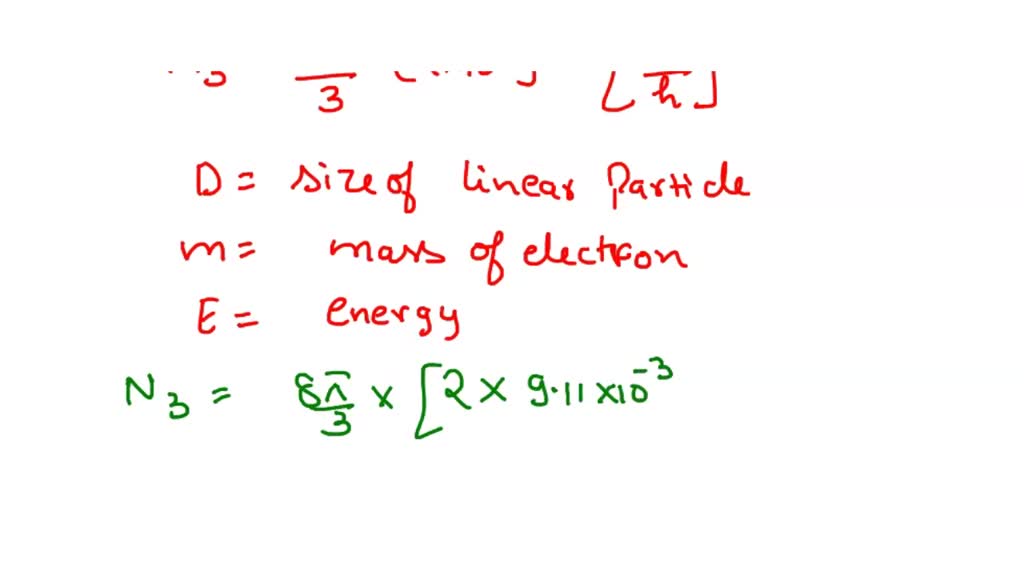 3
h
D = size of linear particle
m = mass of electron
E = energy
N₃ = 8π/3 × [2 × 9.11 × 10⁻³